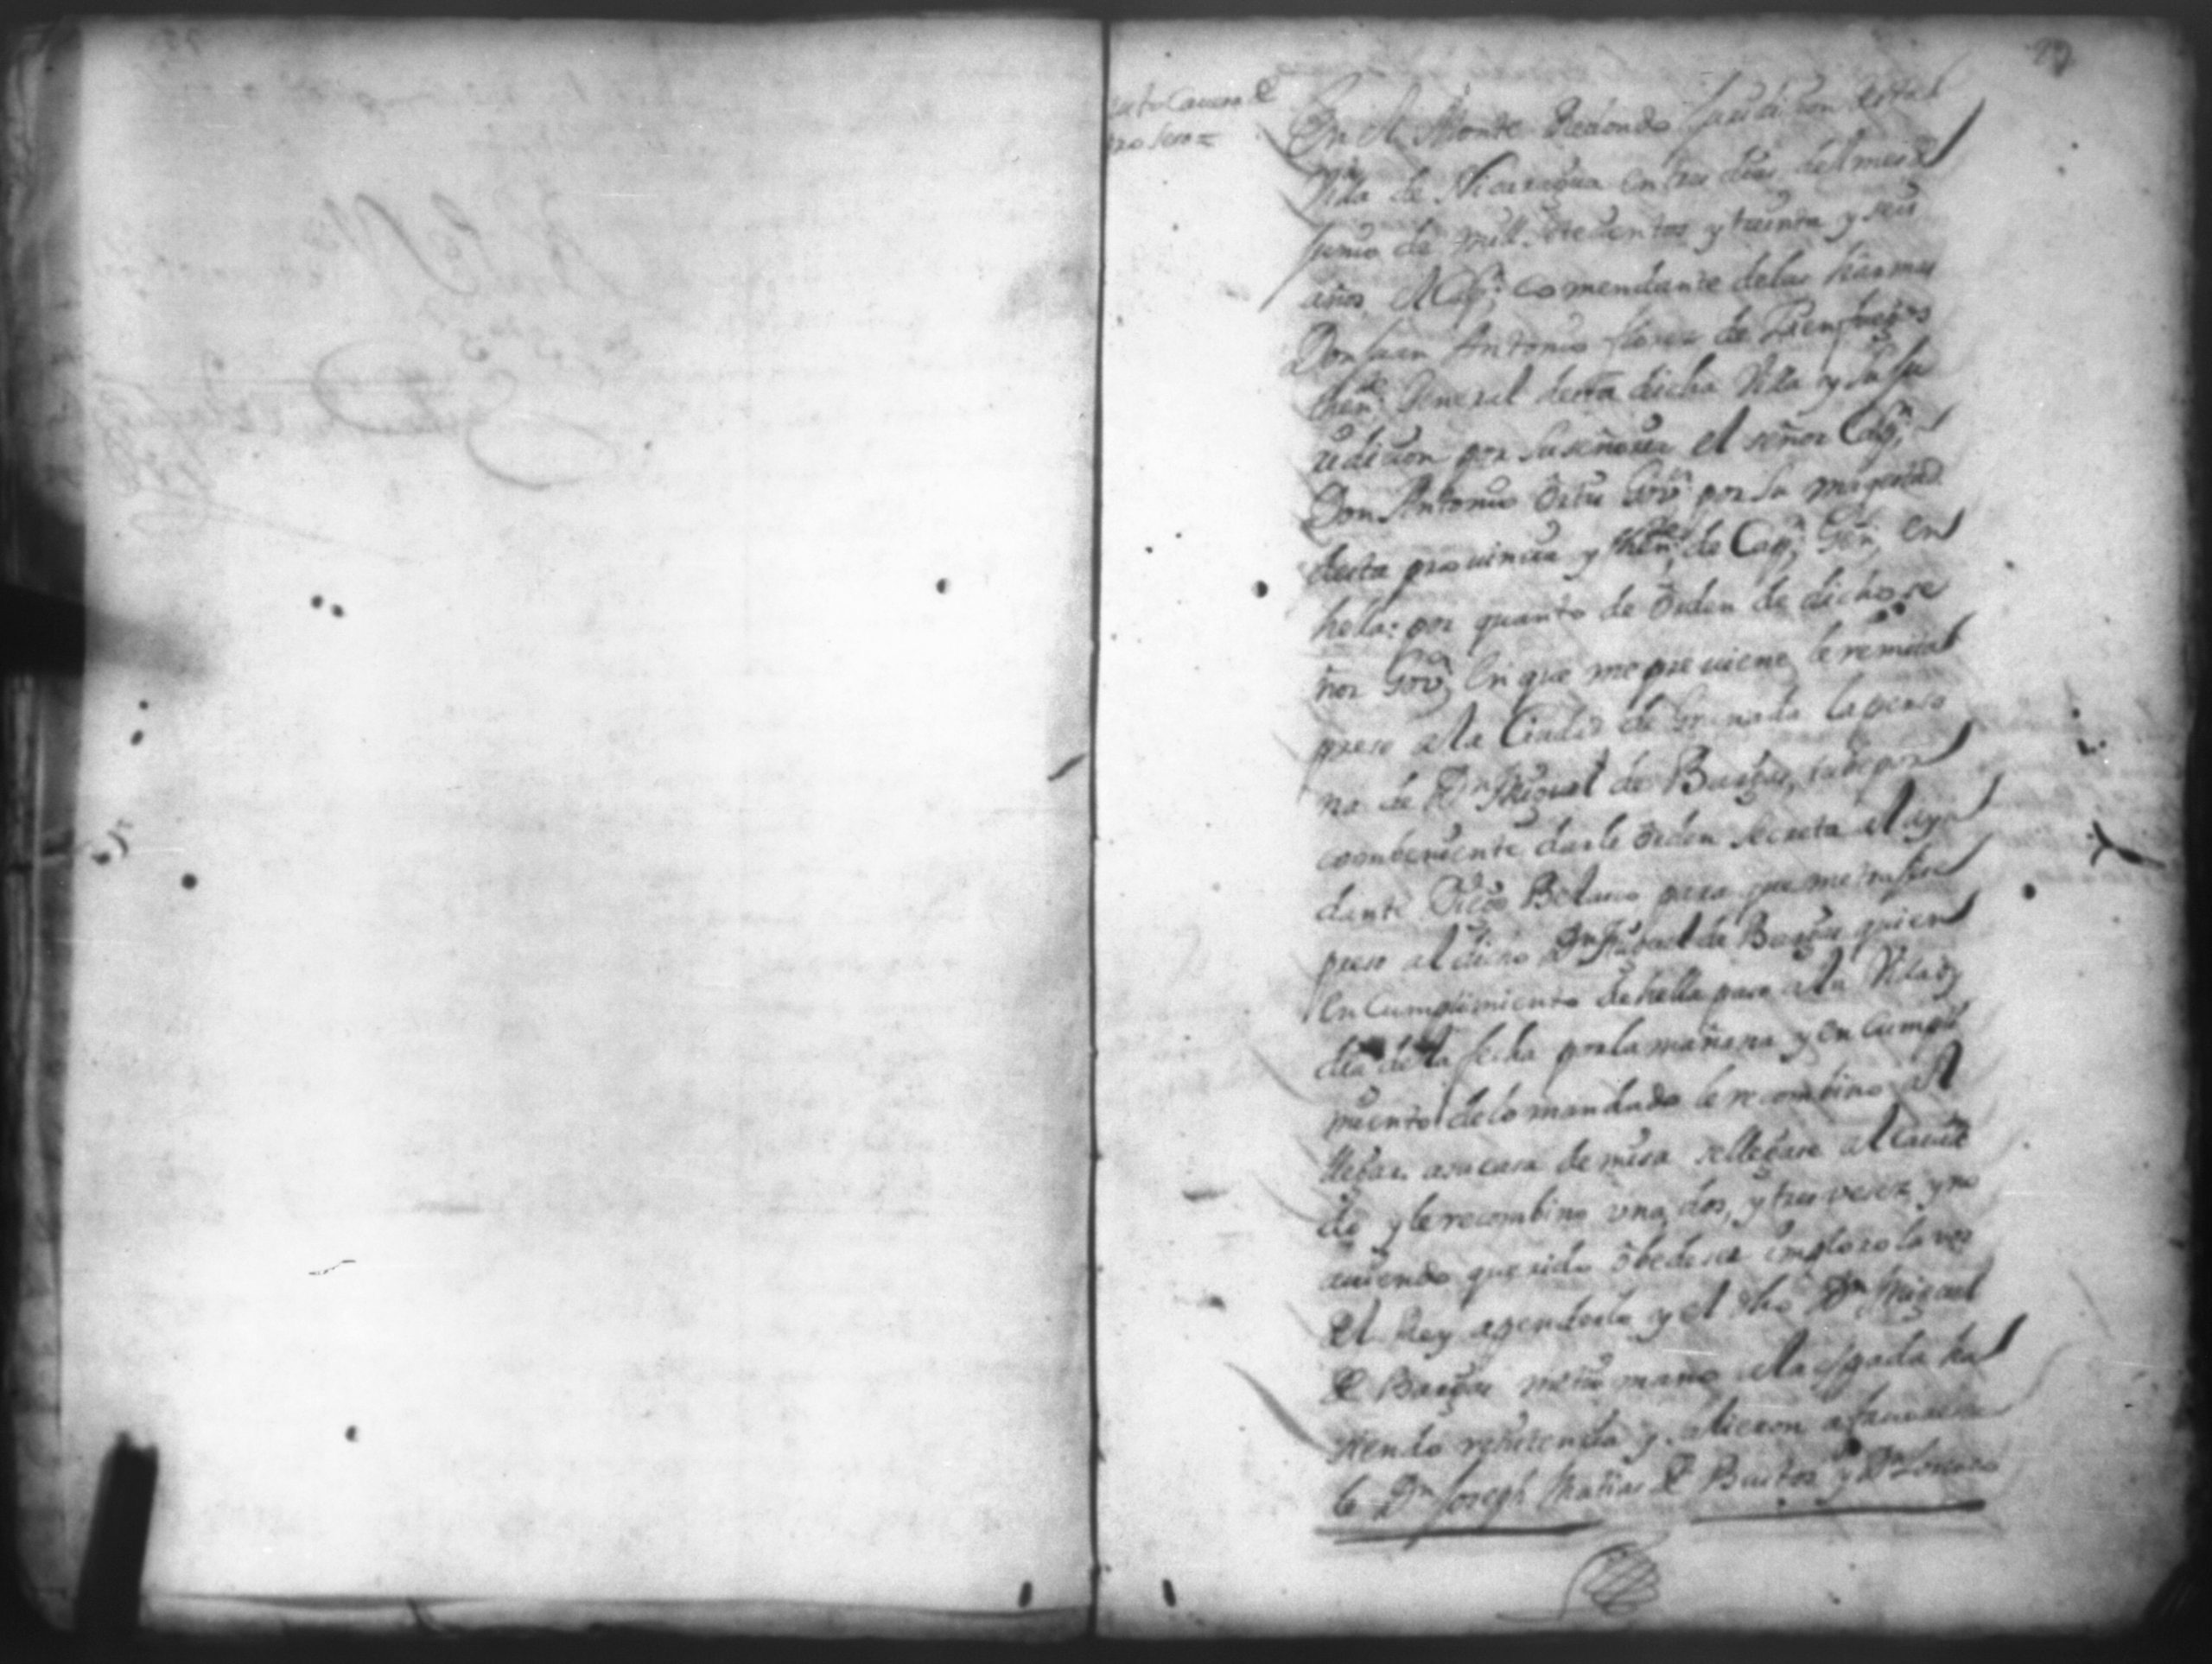 En el Monte Redondo Juridicion desta
Villa de Nicaragua en tres dias del mes de
Junio de mill setecientos y treinta y seis
años el Cap.n comendante delas harmas
Don Juan Antonio flores de
then.te General desta dicha Villa y su Ju
ridicion por su señoria el señor Cap.n
Don Antonio Ortis Gov.r por su magestad
desta prouincia y then.te de Cap.n Gen.l en
hella: por quanto de orden de dicho se
ñor Gov.r en que me preuiene le remita
preso ala Ciudad de Granada la perso
na de D.n Miguel de Bargas, tube por
combeniente darle orden secreta al ayu
dante Diego Belasco para que me trajese
preso al dicho D.n Miguel de Bargas quien
en Cumplimiento de hella paso ala Villa oy
dia de la fecha por la mañana y en Cumpli
miento delo mandado le recombino al
llegar asu casa de misa se llegase al Cauil
do y le recombino vna, dos, y tres veses y no
auiendo querido obedeser imploro la vos
del Rey apendeerlo y el dho D.n Miguel
de Bargas metio mano ala espada ha
siendo resistencia y salieron a fauoreser
le D.n Joseph Matias de Bustos y D.n Lorenso